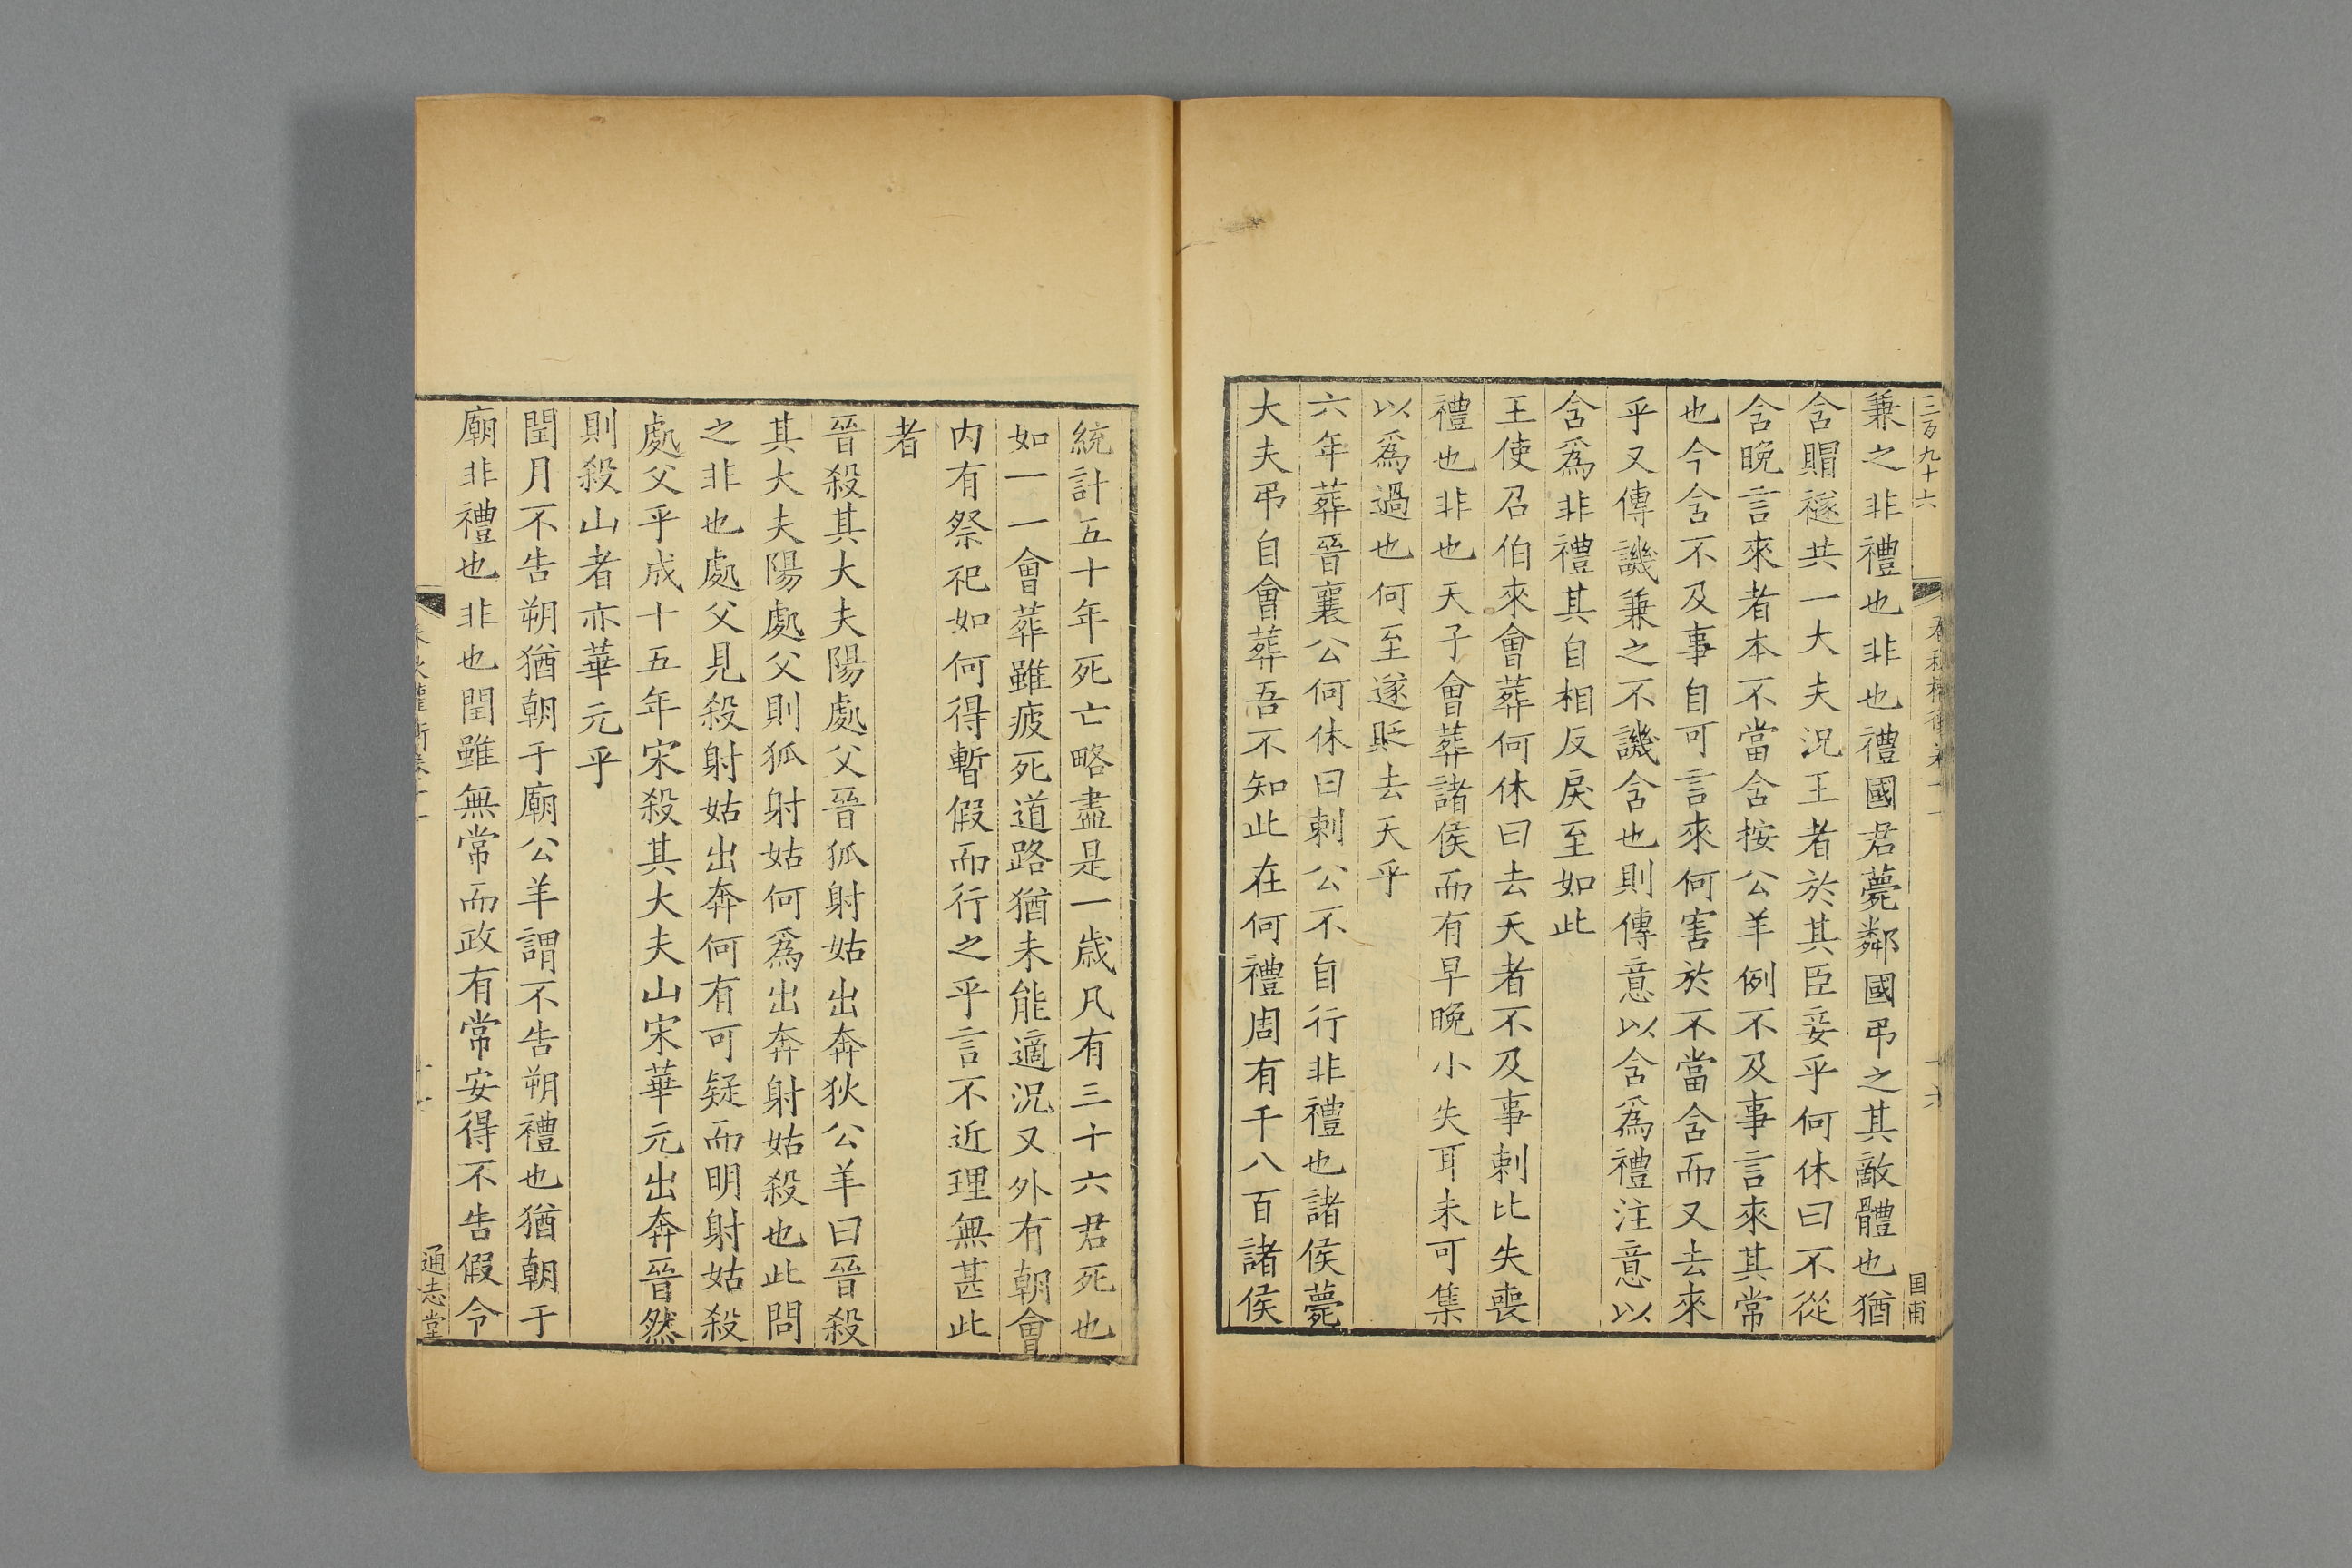 三百九十六
春秋權衡卷十一
十六
国甫
兼之非禮也非也禮國君薨鄰國弔之其敵體也猶
含賵襚共一大夫況王者於其臣妾乎何休曰不從
含晩言來者本不當含按公羊例不及事言來其常
也今含不及事自可言來何害於不當含而又去來
乎又傳譏兼之不譏含也則傳意以含爲禮注意以
含爲非禮其自相反戾至如此
王使召伯來會葬何休曰去天者不及事刺比失喪
禮也非也天子會葬諸侯而有早晩小失耳未可集
以爲過也何至遂貶去天乎
六年葬晉襄公何休曰刺公不自行非禮也諸侯薨
大夫弔自會葬吾不知此在何禮周有千八百諸侯
統計五十年死亡略盡是一歳凡有三十六君死也
如一一會葬雖疲死道路猶未能適況又外有朝會
内有祭祀如何得暫假而行之乎言不近理無甚此
者
晉殺其大夫陽處父晉狐射姑出奔狄公羊曰晉殺
其大夫陽處父則狐射姑何爲出奔射姑殺也此問
之非也處父見殺射姑出奔何有可疑而明射姑殺
處父乎成十五年宋殺其大夫山宋華元出奔晉然
則殺山者亦華元乎
閏月不告朔猶朝于廟公羊謂不告朔禮也猶朝于
廟非禮也非也閏雖無常而政有常安得不告假令
春秋權衡卷十一
通志堂